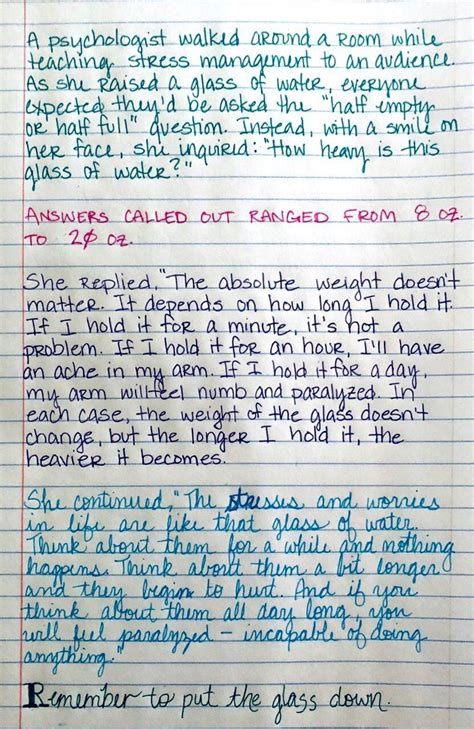 A psychologist walked around a room while
teaching stress management to an audience.
As she raised a glass of water, everyone
expected they'd be asked the "half empty
or half full" question. Instead, with a smile on
her face, she inquired: "How heavy is this
glass of water?"
ANSWERS CALLED OUT RANGED FROM 8 oz.
TO 20 oz.
She replied, "The absolute weight doesn't
matter. It depends on how long I hold it.
If I hold it for a minute, it's not a
problem. If I hold it for an hour, I'll have
an ache in my arm. If I hold it for a day,
my arm will feel numb and paralyzed. In
each case, the weight of the glass doesn't
change, but the longer I hold it, the
heavier it becomes.
She continued, "The stresses and worries
in life are like that glass of water.
Think about them for a while and nothing
happens. Think about them a bit longer
and they begin to hurt. And if you
think about them all day long, you
will feel paralyzed – incapable of doing
anything."
Remember to put the glass down.